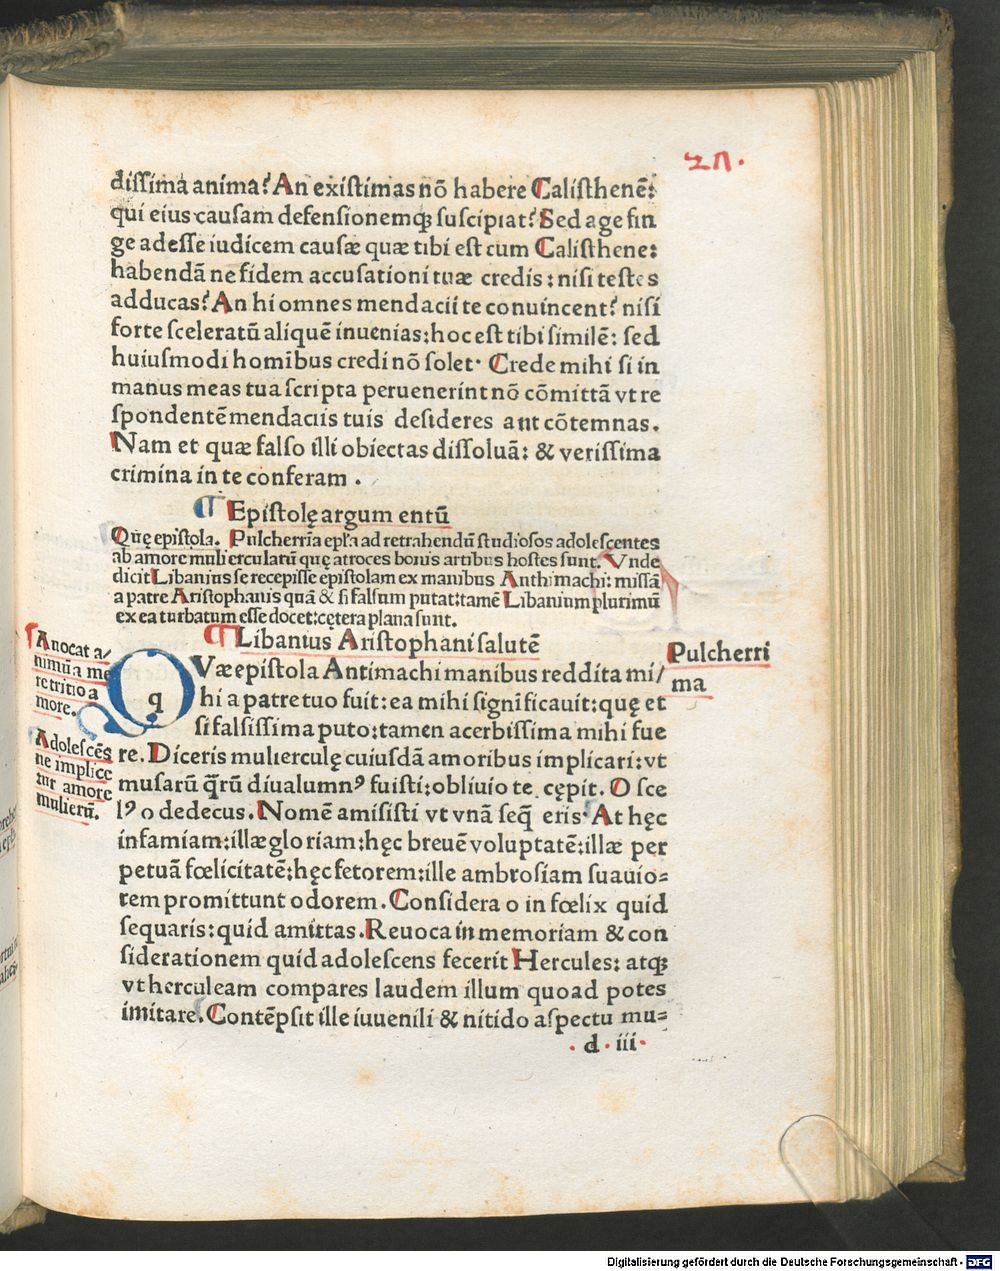 dissima anima? An existimas nō habere Calisthenē:
qui eius causam defensionemqꝫ suscipiat? Sed age fin
ge adesse iudicem causæ quæ tibi est cum Calisthene:
habendā ne fidem accusationi tuæ credis: nisi testes
adducas? An hi omnes mendacii te conuincent? nisi
forte sceleratū aliquē inuenias: hoc est tibi similē: sed
huiusmodi homībus credi nō solet. Crede mihi si in
manus meas tua scripta peruenerint nō cōmittā vt re
spondentē mendaciis tuis desideres aut cōtemnas.
Nam et quæ falso illi obiectas dissoluā: & verissima
crimina in te conferam.
¶ Epistolę argumentū
Quę epistola. Pulcherria epl̄a ad retrahendū studiosos adolescentes
ab amore muliercularū quę atroces bonis artibus hostes sunt. Vnde
dicit Libanius se recepisse epistolam ex manibus Anthimachi: missā
a patre Aristophanis quā & si falsum putat: tamē Libanium plurimū
ex ea turbatum esse docet: cętera plana sunt.
¶ Libanius Aristophani salutē
QVæ epistola Antimachi manibus reddita mi/
hi a patre tuo fuit: ea mihi significauit: quę et
si falsissima puto: tamen acerbissima mihi fue
re. Diceris mulierculę cuiusdā amoribus implicari: vt
musarū q̄rū diu alumnꝰ fuisti: obliuio te cępit. O sce
lꝰ o dedecus. Nomē amisisti vt vnā seq̄ eris. At hęc
infamiam: illæ gloriam: hęc breuē voluptatē: illæ per
petuā fœlicitatē: hęc fetorem: ille ambrosiam suauio=
rem promittunt odorem. Considera o infœlix quid
sequaris: quid amittas. Reuoca in memoriam & con
siderationem quid adolescens fecerit Hercules: atqꝫ
vt herculeam compares laudem illum quoad potes
imitare. Contēpsit ille iuuenili & nitido aspectu mu=
d iii
Auocat a/
nimū a me
retritio a
more.
Adolescēs
ne implice
tur amore
mulierū.
Pulcherri
ma
Digitalisierung gefördert durch die Deutsche Forschungsgemeinschaft - DFG